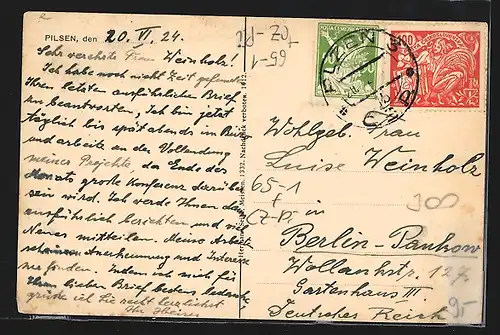 PILSEN, den 20. VI. 24.
Sehr verehrte Frau Weinholz!
Ich habe noch nicht Zeit gefunden
Ihren letzten ausführlichen Brief
zu beantworten, Ich bin jetzt
täglich bis spät abends im Büro
und arbeite an der Vollendung
meines Projekte, da Ende des
Monats große Konferenz darüber
sein wird. Ich werde Ihnen dann
ausführlich berichten und viel
Neues mitteilen. Meine Arbeit
scheinen Anerkennung und Interesse
zu finden. Indem ich mich für
Ihren lieben Brief bestens bedanke
grüße ich Sie recht herzlichst
Ihr
1332. Nachdruck verboten. 1912.
PLZEŇ
Wohlgeb. Frau
Luise Weinholz
in
Berlin-Pankow
Wollankstr. 127.
Gartenhaus III
Deutsches Reich
65-1
+
CZ-Pi
65-1
+CZ-Pi
300
95-